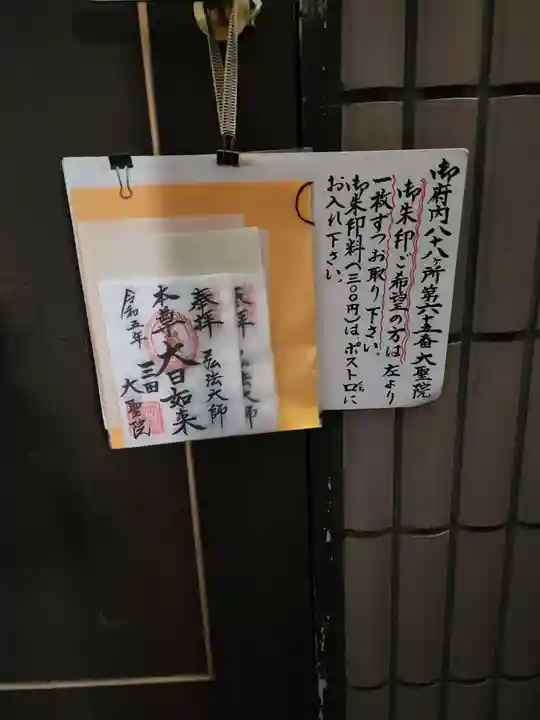 御府内八十八ヶ所第六十五番大聖院
御朱印ご希望の方は左より
一枚ずつお取り下さい。
御朱印料(三〇〇円)は、ポスト口に
お入れ下さい。
奉拝 弘法大師
奉拝 弘法大師
本尊 大日如来
三田
大聖院
令和五年